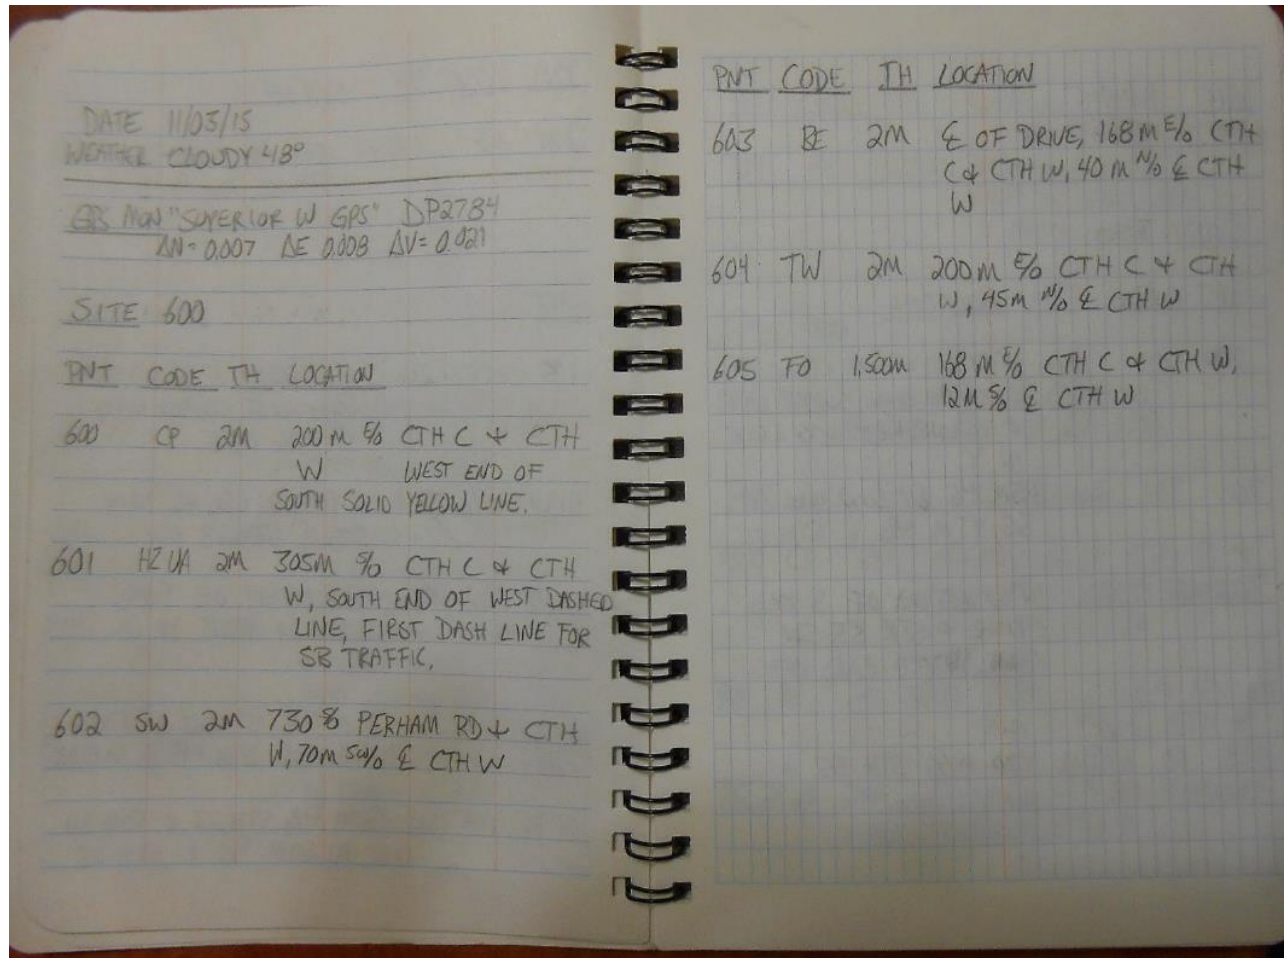 DATE 11/03/15
WEATHER CLOUDY 48°
GPS MON "SUPERIOR W GPS" DP2784
ΔN=0.007 ΔE 0.008 ΔV=0.021
SITE 600
PNT CODE TH LOCATION
600 CP 2M 200 M E/o CTH C & CTH
W WEST END OF
SOUTH SOLID YELLOW LINE.
601 HZ UA 2M 305M S/o CTH C & CTH
W, SOUTH END OF WEST DASHED
LINE, FIRST DASH LINE FOR
SB TRAFFIC.
602 SW 2M 730 PERHAM RD & CTH
W, 70M SW/o ℄ CTH W
PNT CODE TH LOCATION
603 BE 2M ℄ OF DRIVE, 168 M E/o CTH
C & CTH W, 40 M N/o ℄ CTH
W
604 TW 2M 200 M E/o CTH C & CTH
W, 45M N/o ℄ CTH W
605 FO 1.500M 168 M E/o CTH C & CTH W,
12M S/o ℄ CTH W